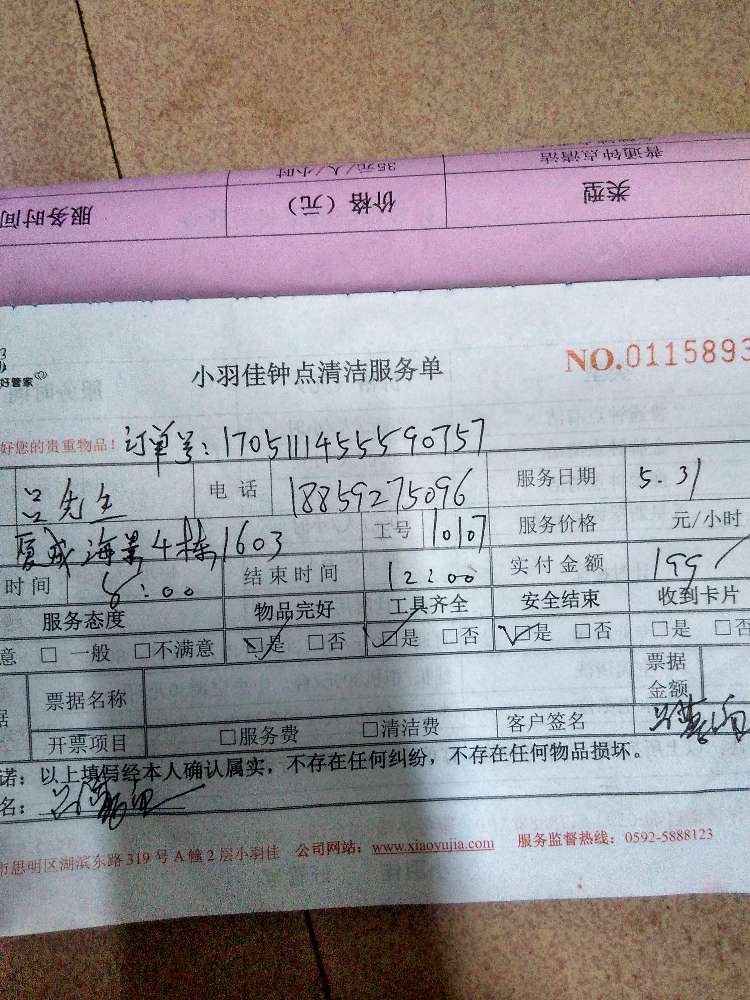 普通钟点清洁 35元/人/小时
类型 价格（元） 服务时间
好管家
小羽佳钟点清洁服务单 NO.0115893
好您的贵重物品！ 订单号：1705111455590757
吕先生 电话 18859275096 服务日期 5.31
海景4栋1603 工号 10107 服务价格 元/小时
时间 8:00 结束时间 12:00 实付金额 199
服务态度 物品完好 工具齐全 安全结束 收到卡片
意 □一般 □不满意 ☑是 □否 ☑是 □否 ☑是 □否 □是 □否
据 票据名称 票据金额
开票项目 □服务费 □清洁费 客户签名
诺：以上填写经本人确认属实，不存在任何纠纷，不存在任何物品损坏。
名：
市思明区湖滨东路319号A幢2层小羽佳 公司网站：www.xiaoyujia.com 服务监督热线：0592-5888123